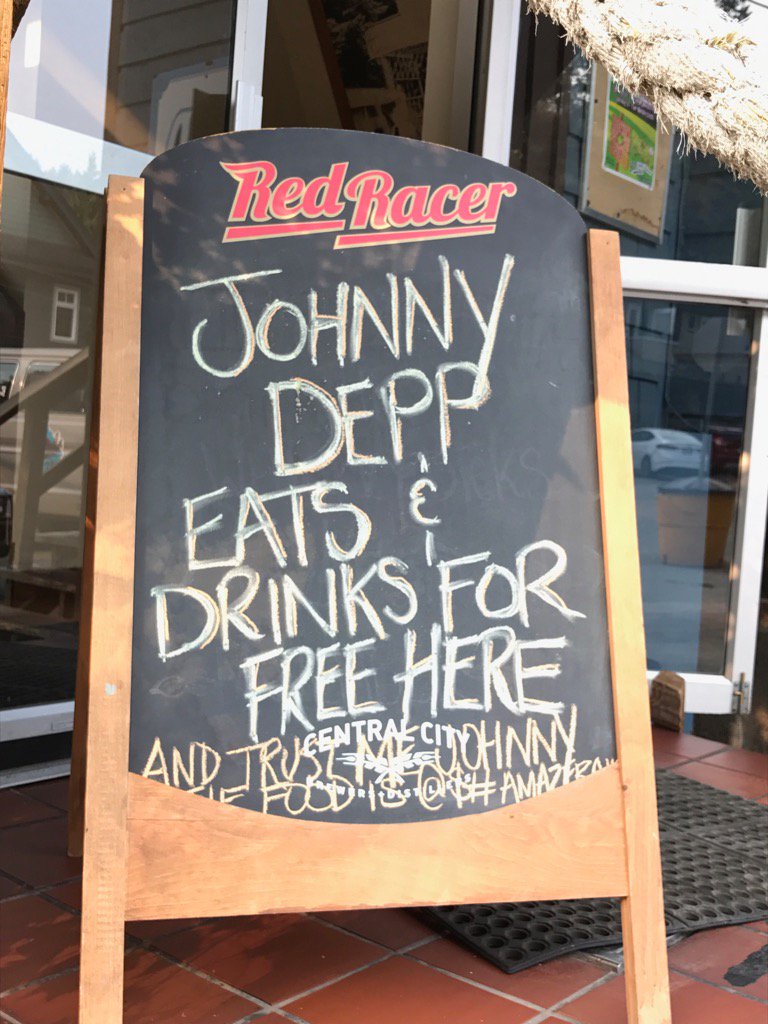 Red Racer
JOHNNY
DEPP
EATS &
DRINKS FOR
FREE HERE
CENTRAL CITY
AND TRUST ME JOHNNY
BREWERS + DISTILLERS
FOOD IS @$#